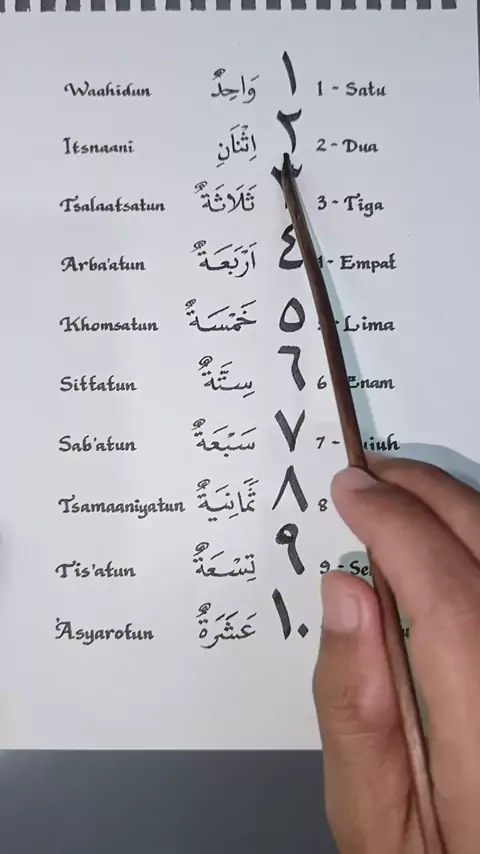 Waahidun وَاحِدٌ ١ 1 - Satu
Itsnaani اِثْنَانِ ٢ 2 - Dua
Tsalaatsatun ثَلَاثَةٌ ٣ 3 - Tiga
Arba'atun اَرْبَعَةٌ ٤ - Empat
Khomsatun خَمْسَةٌ ٥ - Lima
Sittatun سِتَّةٌ ٦ 6 Enam
Sab'atun سَبْعَةٌ ٧ 7 -
Tsamaaniyatun ثَمَانِيَةٌ ٨ 8
Tis'atun تِسْعَةٌ ٩ 9 - Se
'Asyarotun عَشَرَةٌ ١٠